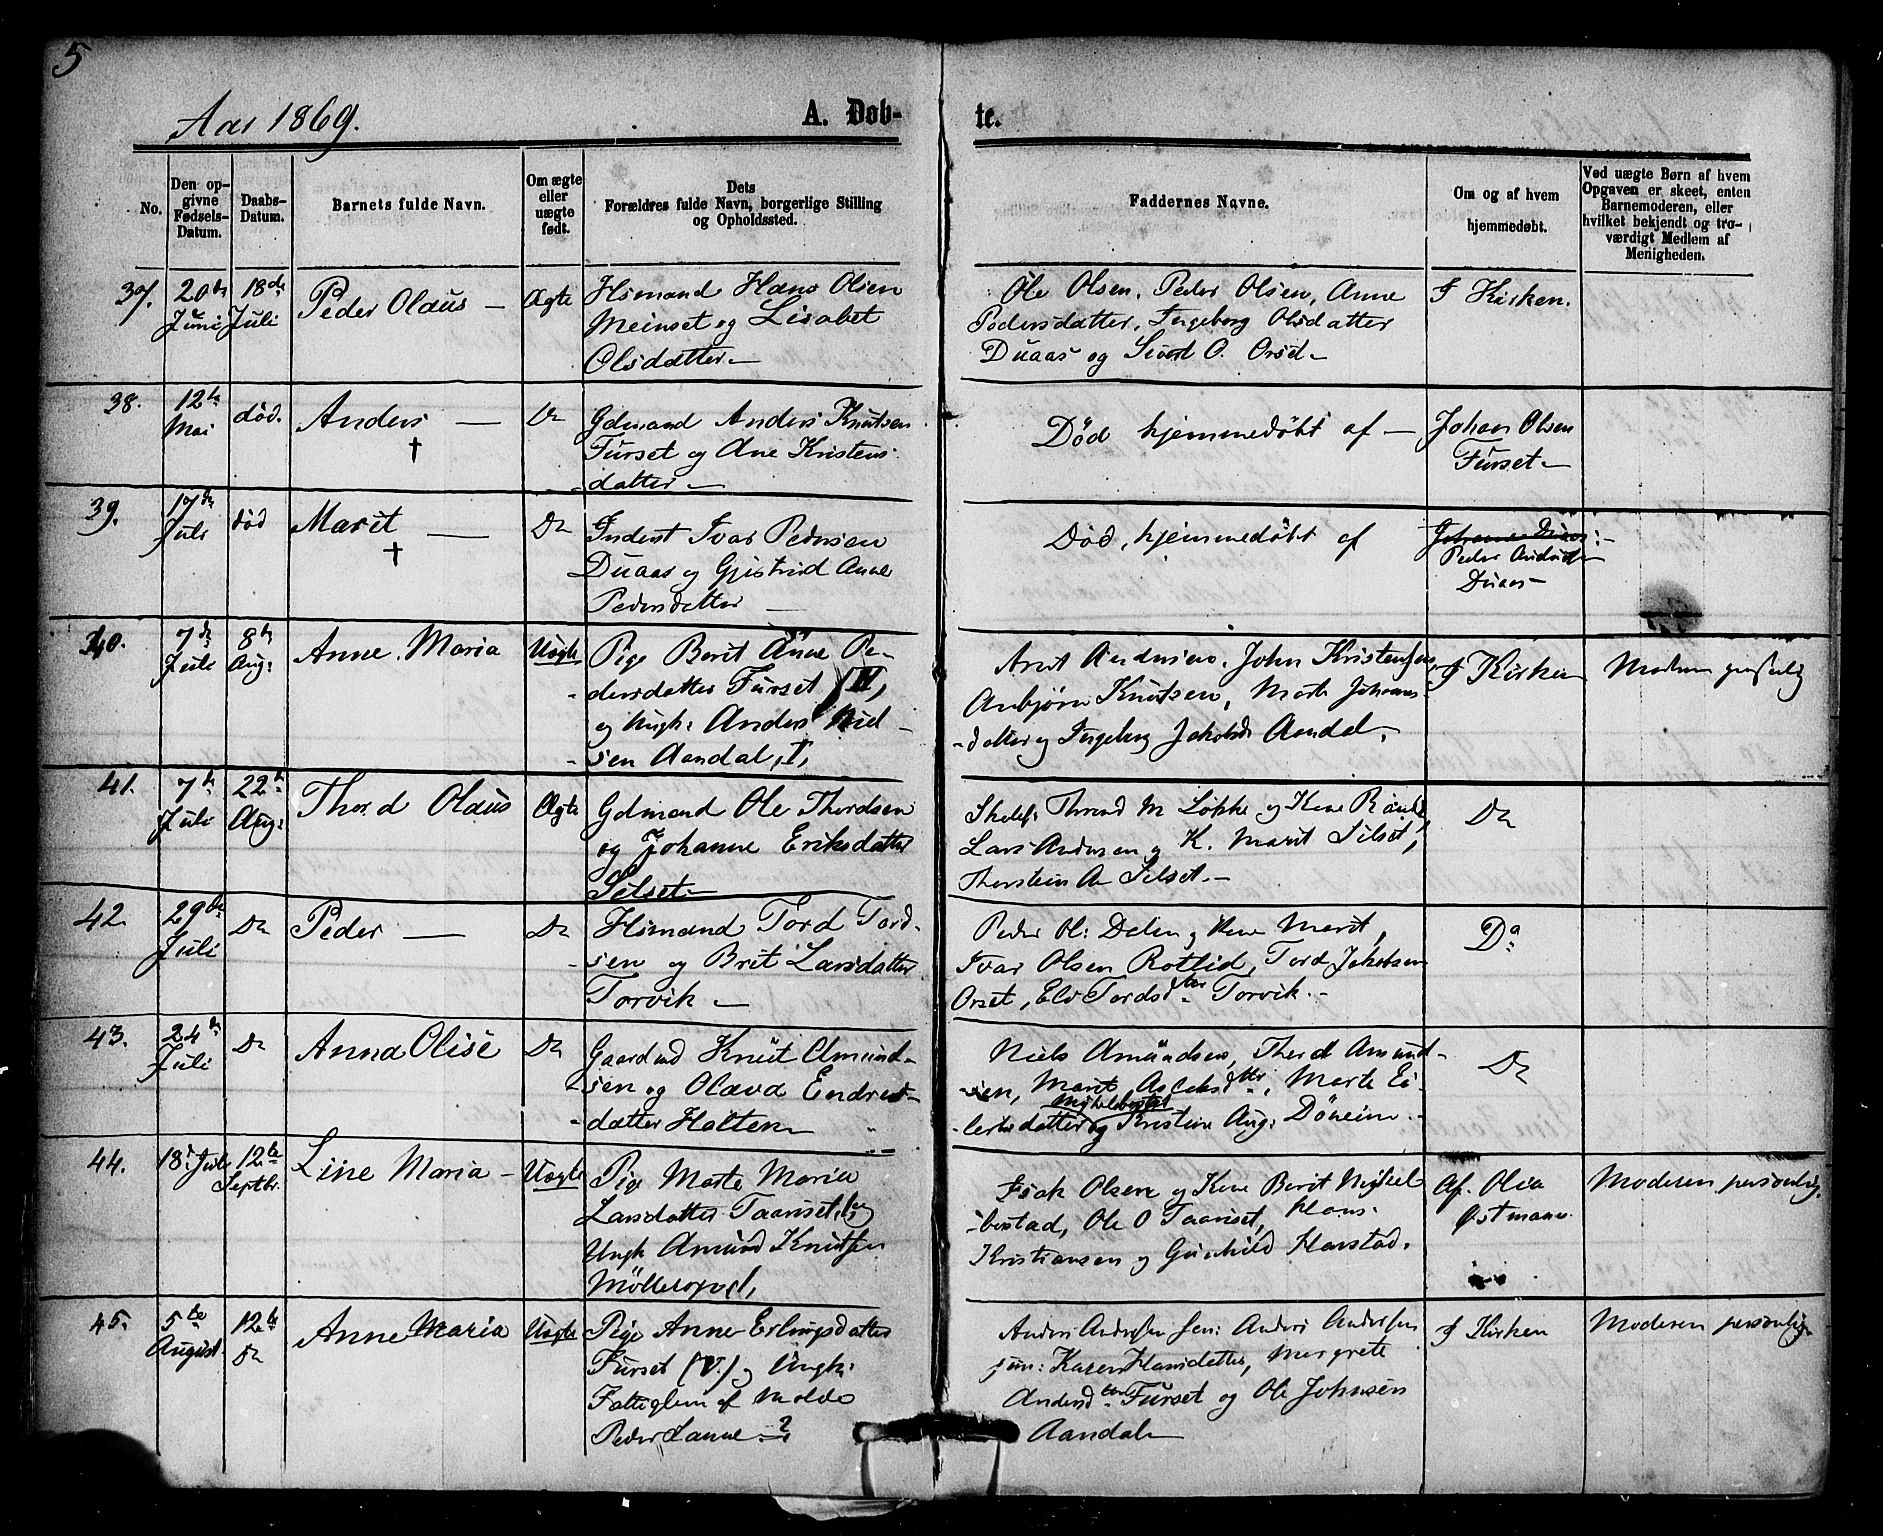 5
Aar 1869.
A. Døb-
te.
No.
Den op-
givne
Fødsels-
Datum.
Daabs-
Datum.
Barnets fulde Navn.
Om ægte
eller
uægte
født.
Dets
Forældres fulde Navn, borgerlige Stilling
og Opholdssted.
Faddernes Navne.
Om og af hvem
hjemmedøbt.
Ved uægte Børn af hvem
Opgaven er skeet, enten
Barnemoderen, eller
hvilket bekjendt og tro-
værdigt Medlem af
Menigheden.
37.
20de
Juni
18de
Juli
Peder Olaus —
Ægte
Hsmand Hans Olsen
Meinset og Lisabet
Olsdatter —
Ole Olsen, Peder Olsen, Anne
Pedersdatter, Ingeborg Olsdatter
Duaas og Sivert O. Orset —
I Kirken.
38.
12te
Mai
død.
Anders —
†
Do
Gdmand Anders Knutsen
Furset og Ane Kristens-
datter —
Død hjemmedøbt af —
Johan Olsen
Furset —
39.
17de
Juli
død
Marit —
†
Do
Inderst Ivar Pedersen
Duaas og Gjistrud Anne
Pedersdatter —
Død, hjemmedøbt af
Peder
Duaas —
40.
7de
Juli
8de
Aug:
Anne Maria
Uægte
Pige Berit Anne Pe-
dersdatter Furset (II)
og Ungk: Anders Niel-
sen Aandal, I,
Arnt Andersen, John Kristensen,
Anbjørn Knutsen, Marte Johans-
datter og Ingeborg Jakobsd Aandal.
I Kirken
Moderen
41.
7de
Juli
22de
Aug:
Thord Olaus
Ægte
Gdmand Ole Thordsen
og Johanne Eriksdatter
Silset —
Thrond M Løkke og Kone
Lars Andersen og K. Marit Silset,
Thorstein A Silset. —
Do
42.
29de
Juli
Do
Peder —
Do
Hsmand Tord Tord-
sen og Brit Larsdatter
Torvik —
Peder Ol: Dalen og Kone Marit,
Ivar Olsen Rotlid, Tord Jakobsen
Orset, Eli Tordsdtter Torvik. —
Do
43.
24de
Juli
Do
Anna Olise
Do
Gaardmd Knut Amund-
sen og Olava Endres-
datter Holten —
Niels Amundsen, Thord Amund-
sen, Marit Aslaksdtter, Marte Ei-
Myhlebostad
lertsdatter og Kristine Aug: Döneim —
Do
44.
18. Juli
12te
Septbr.
Line Maria —
Uægte
Pige Marte Maria
Larsdatter Taanset, og
Ungk Amund Knutsen
Isak Olsen og Kone Berit Myhlel
bostad, Ole O Taanset, Hans
Kristiansen og Gunhild Harstad.
Af Olia
Østmann.
Moderen personlig.
45.
5te
August
12te
Do
Anne Maria
Uægte
Pige Anne Erlingsdatter
Furset (V.) og Ungk:
Fattiglem af Molde
Peder Lanne ?
Anders Andersen sen: Anders Andersen
jun: Karen Hansdatter, Margrete
Andersdtter Furset og Ole Johnsen
Aandal —
I Kirken
Moderen personlig